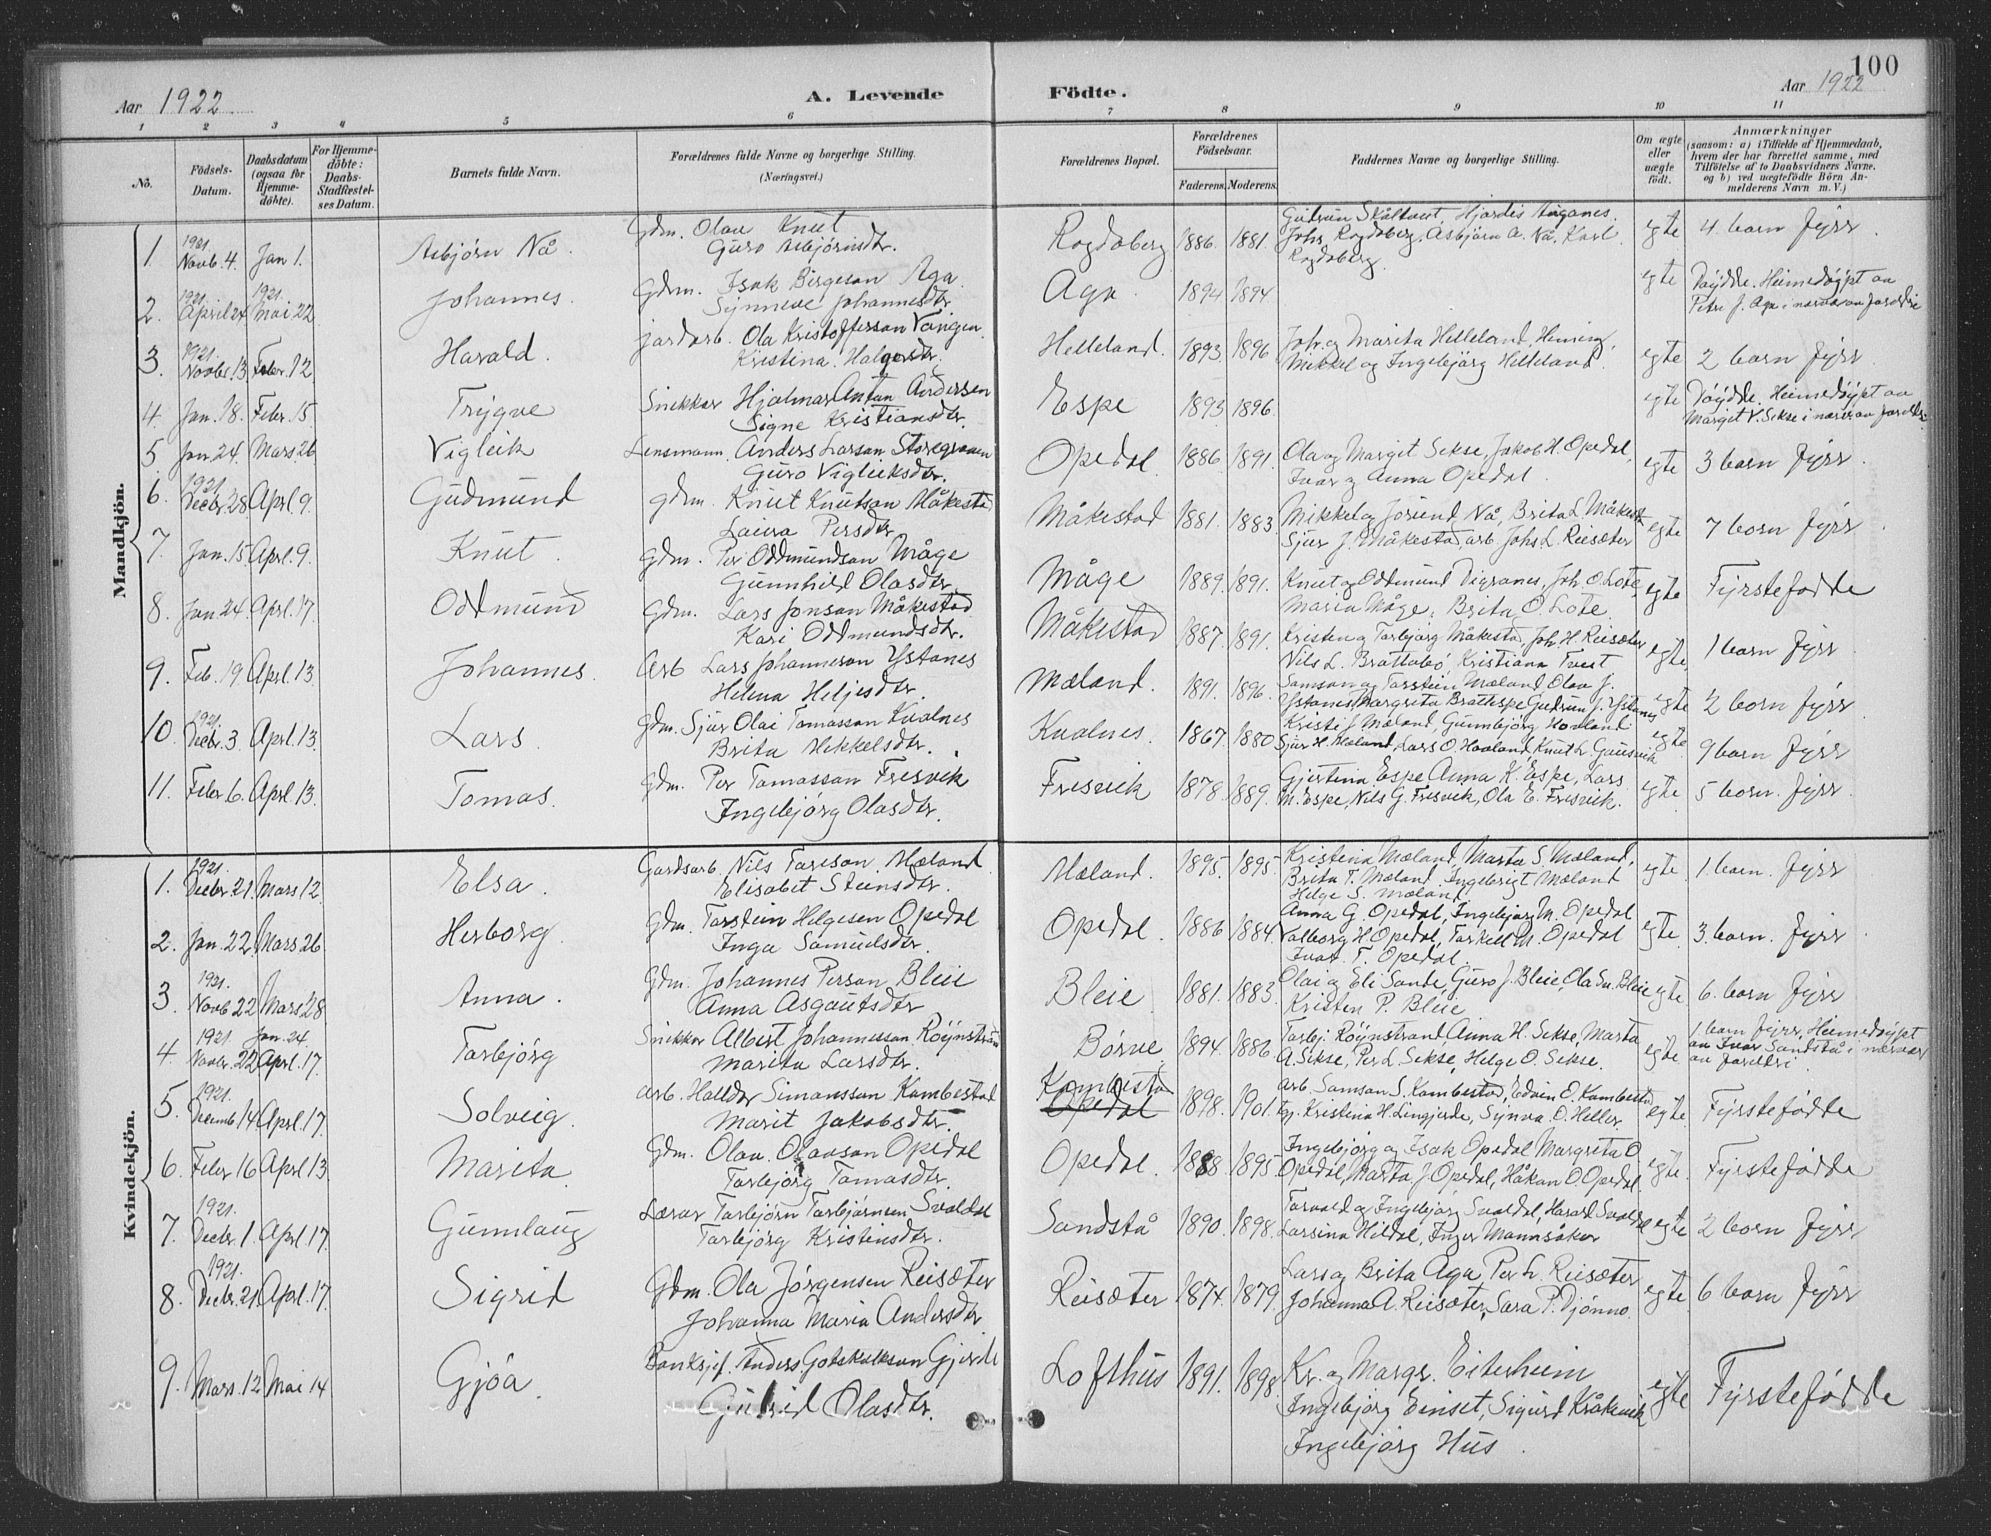 100
Aar 1922 A. Levende Födte. Aar 1922
1 2 3 4 5 6 7 8 9 10 11
No. Födsels-Datum. Daabsdatum (ogsaa for Hjemme-döbte). For Hjemme-döbte: Daabs-Stadfæstel-ses Datum. Barnets fulde Navn. Forældrenes fulde Navne og borgerlige Stilling. (Næringsvei.) Forældrenes Bopæl. Forældrenes Födselsaar. Faderens. Moderens. Faddernes Navne og borgerlige Stilling. Om ægte eller uægte födt. Anmærkninger (saasom: a) i Tilfælde af Hjemmedaab, hvem der har forrettet samme, med Tilföielse af to Daabsvidners Navne, og b) ved uægtefödte Börn An-melderens Navn m. V.)
Mandkjön.
1. 1921 Novb. 4. Jan 1. Asbjörn Nå. Gdm. Olav Knut
Guro Asbjörnsdtr. Rogdaberg 1886. 1881. Gudrun Skåltveit, Hjördis
Johs. Rogdaberg, Asbjörn A. Nå, Karl
Rogdaberg. egte 4 born fyrr.
2. 1921. April 24 1921. Mai 22 Johannes. Gdm. Isak Birgeson Aga
Synneve Johannesdtr Aga 1894 1894 egte Döydde. Heimedöypt av
Petra J. Aga i nærvær av foreldre
3. 1921. Novbr. 13 Febr. 12 Harald. jordarb. Ola Kristofferson Vangen
Kristina Helleland. 1893. 1896 Joh. og Marita Helleland, Heming,
Mikkel og Ingebjörg Helleland. egte 2 born fyrr
4. Jan. 18. Febr. 15. Trygve Snikkar Hjalmar Anton Andersen
Signe Kristiansdtr. Espe 1893 1896. egte Döydde. Heimedöypt av
Marget V. Sekse i nærv. av foreldr.
5 Jan. 24. Mars. 26 Vigleik Lensmann. Anders Larson Storegraven
Guro Vigleiksdtr. Opedal 1886 1891. Ola og Margit Sekse, Jakob H. Opedal,
Ivar og Anna Opedal. egte 3 born fyrr.
6. 1921 Decbr. 28 Apr. 9. Gudmund gdm. Knut Knutson Måkestad
Laura Persdtr Måkestad 1881. 1883. Mikkel og Jorund Nå, Brita L Måkestad
Sjur J. Måkestad, arb. Johs L. Reisæter egte 7 born fyrr
7. Jan. 15 Apr. 9. Knut Gdm. Per Oddmundson Måge
Gunnhild Olasdtr. Måge 1889. 1891. Knut og Oddmund Digranes, Joh. O. Lote,
Maria Måge, Brita O. Lote egte Fyrstefødde
8. Jan. 24. Aprl. 17. Oddmund Gdm. Lars Jonson Måkestad
Kari Oddmundsdtr. Måkestad 1887. 1891. Kristen og Torbjörg Måkestad, Joh. H. Reisæter
Nils L. Brattabø, Kristiana Tveit egte 1 born fyrr
9. Feb. 19 Aprl. 13 Johannes. Arb Lars Johanneson Ystanes
Helena Heljesdtr. Mæland. 1891. 1896. Samson og Torstein Mæland Olav J.
Ystanes, Margreta Brattespe Gudrun J. Ystanes egte 2 born fyrr
10. 1921. Decbr. 3. Aprl. 13. Lars. Gdm. Sjur Olai Tomasson Kvalnes
Brita Mikkelsdtr. Kvalnes. 1867 1880 Kristi J. Mæland, Gunnbjörg Hovland
Sjur H. Mæland, Lars O. Hovland, Knut L. Gausvik egte. 9 born fyrr
11. Febr 6. Aprl. 13. Tomas. Gdm. Per Tomasson Fresvik
Ingebjörg Olasdtr. Fresvik 1878. 1889. Gjertina Espe Anna K. Espe, Lars
M. Espe, Nils G. Fresvik, Ola E. Fresvik. egte 5 born. fyrr.
Kvindekjön.
1. 1921. Decbr. 21. Mars 12 Elsa. Gardsarb. Nils Tareson Mæland
Elisabet Steinsdtr. Mæland. 1895. 1895. Kristina Mæland, Marta S. Mæland,
Brita T. Mæland, Ingebrigt Mæland
Helge S. Mæland egte 1. born. fyrr
2. Jan. 22. Mars. 26 Herborg. Gdm. Torstein Helgesen Opedal
Inga Samuelsdtr. Opedal. 1886 1884. Anna G. Opedal, Ingebjørg M. Opedal
Valborg H. Opedal, Torkell M. Opedal
Ivar T. Opedal. egte. 3. born. fyrr.
3 1921. Novb 22 Mars 28 Anna. Gdm. Johannes Person Bleie
Anna Asgautsdtr Bleie 1881. 1883. Olai og Eli Sande, Guro J. Bleie, Ola Sn. Bleie
Kristen P. Bleie egte 6. born fyrr
4. 1921 Novbr. 22 Jan. 24. Aprl. 17. Torbjörg Snikkar Albert Johannesson Röynstrand
Marita Larsdtr. Børve 1894. 1886. Torbj. Röynstrand, Anna H. Sekse, Marta
A. Sekse, Per L. Sekse, Helge O. Sekse. egte 1 born fyrr, Heimedöypt
av Ivar Sandstå i nærvær
av foreldri.
5. 1921. Decemb. 14 Aprl. 17. Solveig. arb. Halldor Simonsson Kambestad
Marit Jakobsdtr. Kambestad Opedal 1898. 1901. arb. Samson S. Kambestad, Edvin O. Kambestad
tg. Kristina H. Lingjerde, Synva O. Heller. egte Fyrstefødde
6. Febr 16 Aprl. 13 Marita Gdm. Olav Olavson Opedal
Torbjörg Tomasdtr. Opedal. 1888 1895 Ingebjörg og Isak Opedal Margreta O.
Opedal, Marta J Opedal, Håkon O. Opedal. egte. Fyrstefødde
7. 1921. Decbr. 1. Aprl. 17. Gunnlaug Lærar Torbjörn Torbjörnsen Svaldal
Torbjörg Kristensdtr. Sandstå 1890. 1898. Torvald og Ingebjörg Svaldal, Harald Svaldal
Larsina Hildal, Inger Mannsåker egte 2 born fyrr
8. 1921. Decbr. 21 Aprl. 17. Sigrid Gdm. Ola Jörgensen Reisæter
Johanna Maria Andersdtr Reisæter 1874. 1879. Lars og Brita Aga, Per L. Reisæter
Johanna A. Reisæter, Sara P. Djönno. egte 6 born fyrr
9. Mars. 12 Mai 14 Gjöa. Banksjef. Anders Gotskalkson Gjerde
Gudrid Olasdtr. Lofthus 1891. 1898. Kr. og Margr. Eitrheim
Ingebjörg Einset, Sigurd Kråkevik
Ingebjörg Hus. egte Fyrstefødde